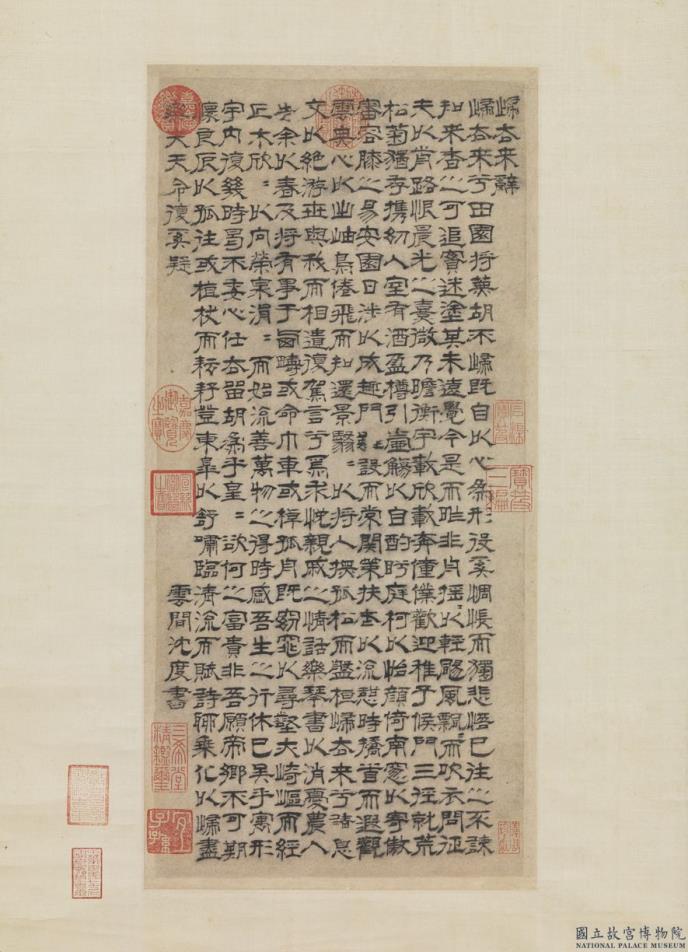 歸去來辭
歸去來兮田園將蕪胡不歸既自以心為形役奚惆悵而獨悲悟已往之不諫
知來者之可追寔迷塗其未遠覺今是而昨非舟搖以輕颺風飄而吹衣問征
夫以前路恨晨光之熹微乃瞻衡宇載欣載奔僮僕歡迎稚子候門三徑就荒
松菊猶存攜幼入室有酒盈樽引壺觴以自酌眄庭柯以怡顏倚南窗以寄傲
審容膝之易安園日涉以成趣門雖設而常關策扶老以流憩時矯首而遐觀
雲無心以出岫鳥倦飛而知還景翳〻以將入撫孤松而盤桓歸去來兮請息
交以絕游世與我而相遺復駕言兮焉求悅親戚之情話樂琴書以消憂農人
告余以春及將有事于西疇或命巾車或棹孤舟既窈窕以尋壑亦崎嶇而經
丘木欣〻以向榮泉涓〻而始流善萬物之得時感吾生之行休已矣乎寓形
宇內復幾時曷不委心任去留胡為乎皇〻欲何之富貴非吾願帝鄉不可期
懷良辰以孤往或植杖而耘耔登東皋以舒嘯臨清流而賦詩聊乘化以歸盡
樂夫天命復奚疑
雲間沈度書
嘉慶御覽之寶
三希堂精鑑璽
宜子孫
國立故宮博物院
NATIONAL PALACE MUSEUM